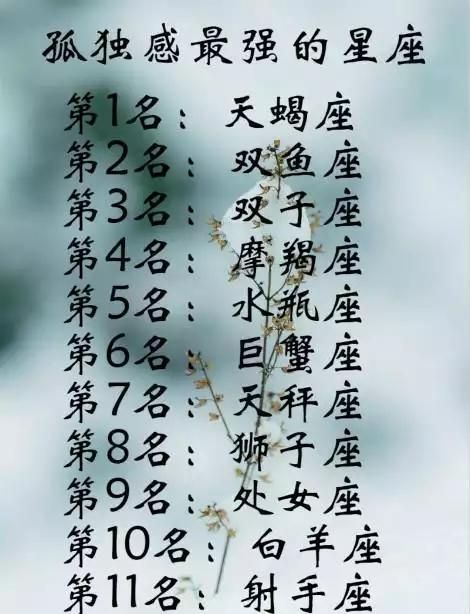 孤独感最强的星座
第1名：天蝎座
第2名：双鱼座
第3名：双子座
第4名：摩羯座
第5名：水瓶座
第6名：巨蟹座
第7名：天秤座
第8名：狮子座
第9名：处女座
第10名：白羊座
第11名：射手座